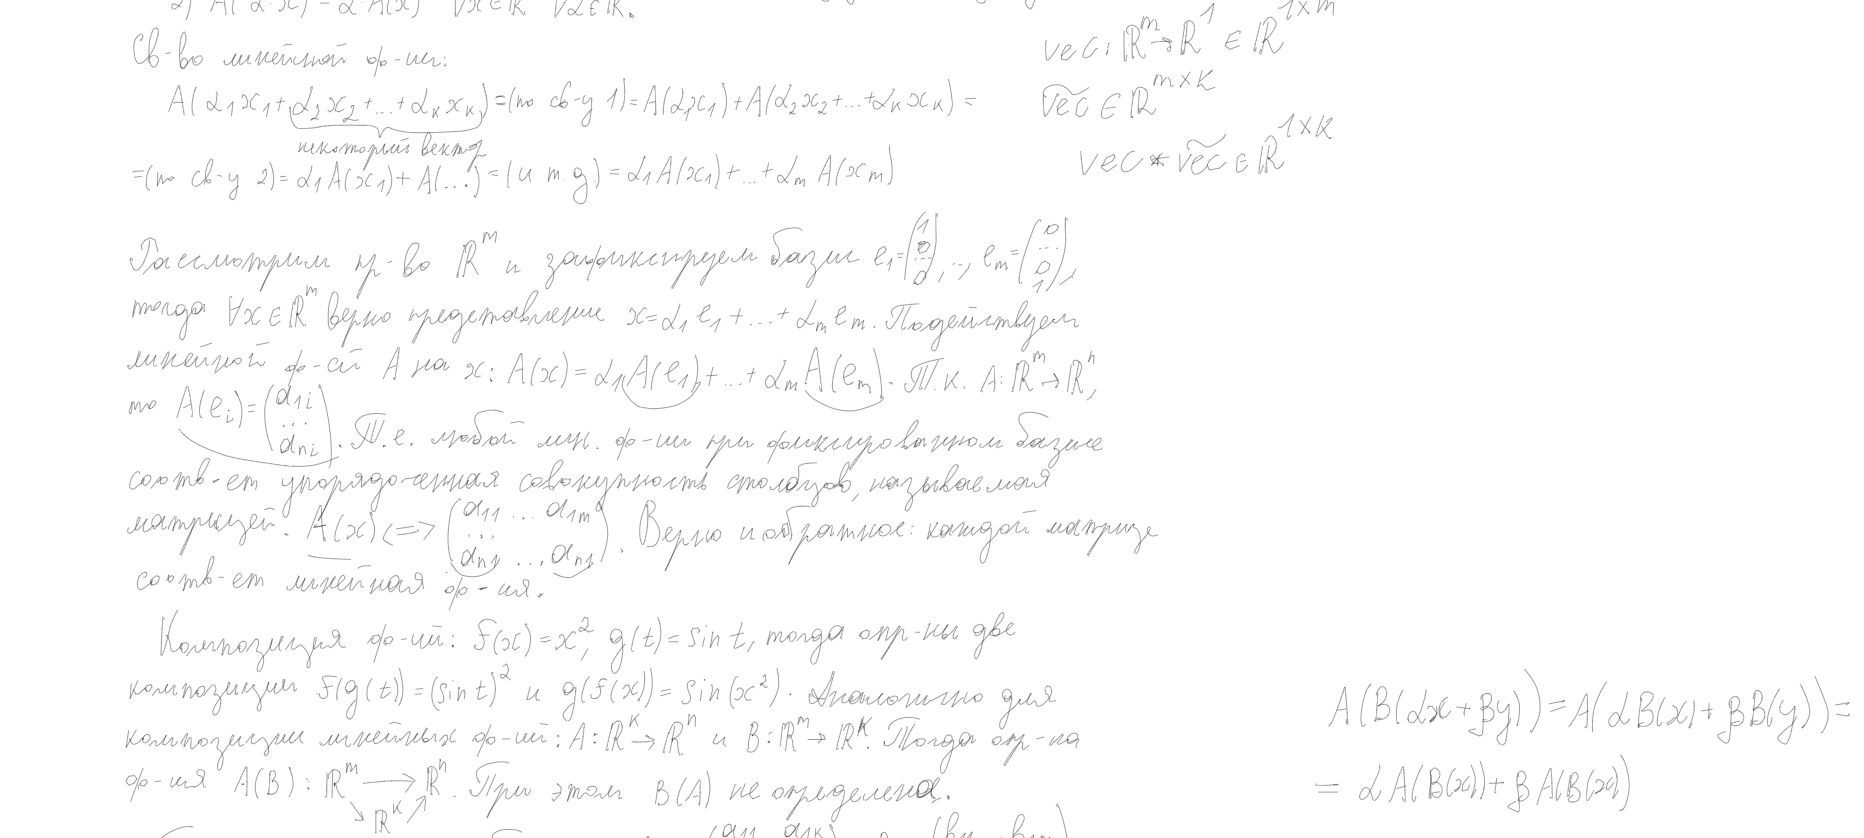 2) A(α·x) = α·A(x) ∀x∈ℝ ∀α∈ℝ.
Св-во линейной ф-ии:
A(α₁x₁+α₂x₂+...+αₖxₖ)=(по св-у 1)=A(α₁x₁)+A(α₂x₂+...+αₖxₖ)=
некоторый вектор
=(по св-у 2)=α₁A(x₁)+A(...)=(и т.д.)=α₁A(x₁)+...+αₘA(xₘ)
vec: ℝᵐ→ℝ¹ ∈ ℝ^{1×m}
v͠ec ∈ ℝ^{m×k}
vec * v͠ec ∈ ℝ^{1×k}
Рассмотрим пр-во ℝᵐ и зафиксируем базис e₁=(1 0 ... 0), .., eₘ=(0 ... 0 1),
тогда ∀x∈ℝᵐ верно представление x=α₁e₁+...+αₘeₘ. Подействуем
линейной ф-ей A на x: A(x)=α₁A(e₁)+...+αₘA(eₘ). Т.к. A:ℝᵐ→ℝⁿ,
то A(eᵢ)=(α₁ᵢ ... αₙᵢ). Т.е. любой лин. ф-ии при фиксированном базисе
соотв-ет упорядоченная совокупность столбцов, называемая
матрицей. A(x)<=>(α₁₁ ... α₁ₘ ... αₙ₁ ... αₙ₁). Верно и обратное: каждой матрице
соотв-ет линейная ф-ия.
Композиция ф-ий: f(x)=x², g(t)=sin t, тогда опр-ны две
композиции f(g(t))=(sin t)² и g(f(x))=sin(x²). Аналогично для
композиции линейных ф-ий: A:ℝᵏ→ℝⁿ и B:ℝᵐ→ℝᵏ. Тогда опр-на
ф-ия A(B): ℝᵐ→ℝⁿ. При этом B(A) не определена.
↘ ℝᵏ ↗
A(B(αx+βy))=A(αB(x)+βB(y))=
= αA(B(x))+βA(B(x))